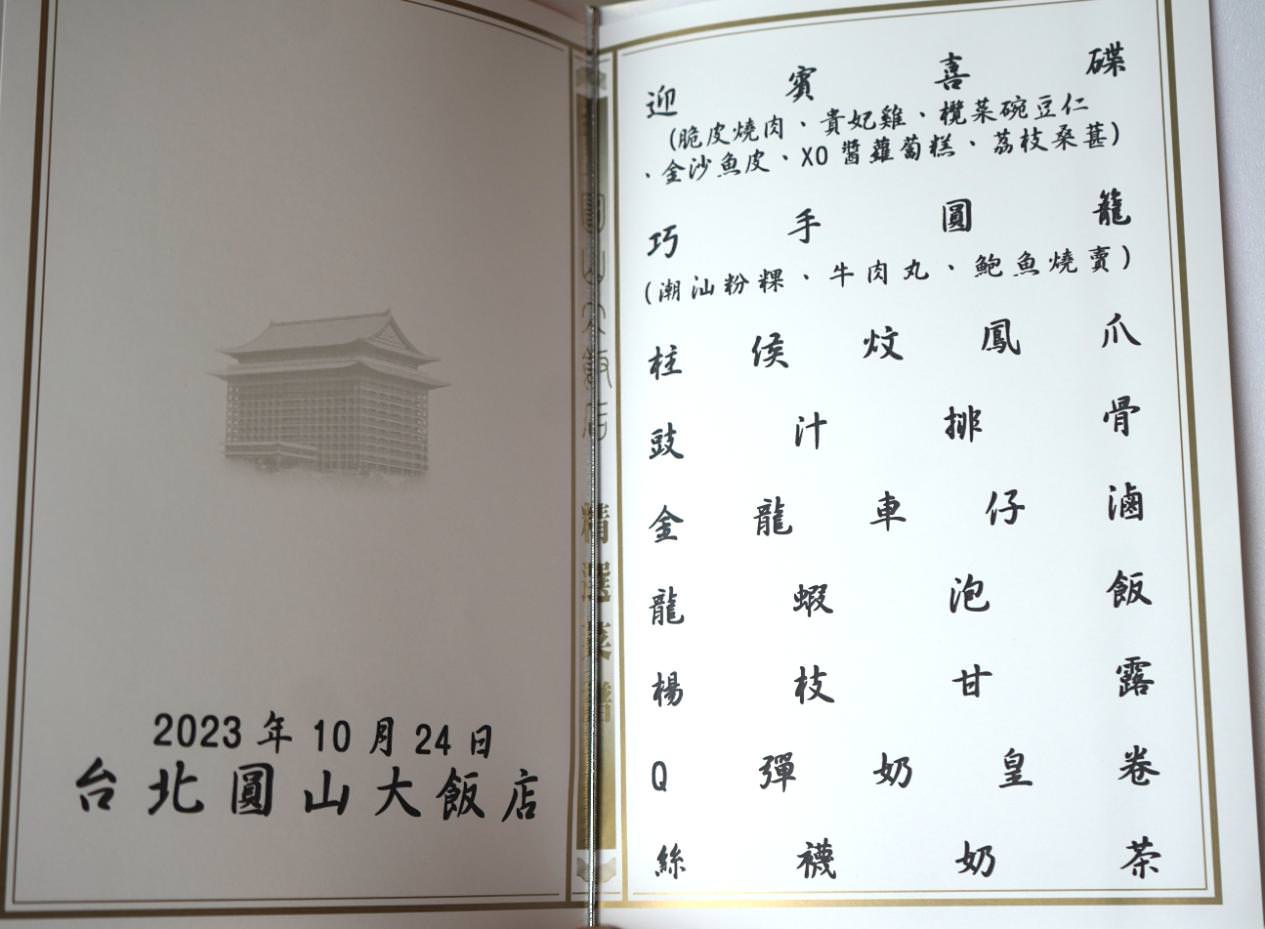 2023 年 10 月 24 日
台北圓山大飯店
圓山大飯店 精選菜譜
迎賓喜碟
(脆皮燒肉、貴妃雞、欖菜碗豆仁
、金沙魚皮、XO 醬蘿蔔糕、荔枝桑葚)
巧手圓籠
(潮汕粉粿、牛肉丸、鮑魚燒賣)
柱侯炆鳳爪
豉汁排骨
金龍車仔滷
龍蝦泡飯
楊枝甘露
Q彈奶皇卷
絲襪奶茶